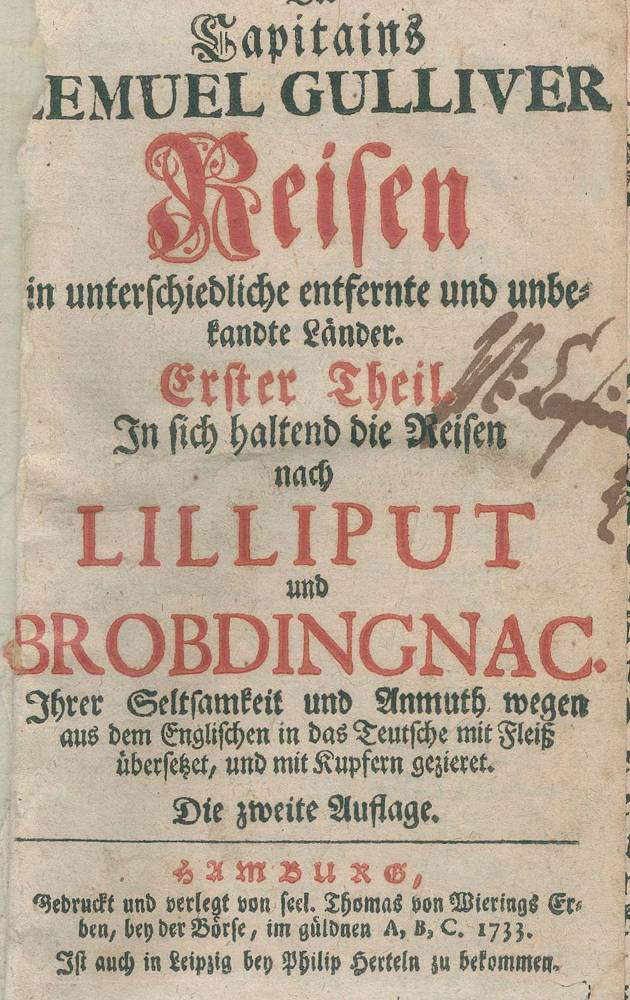 Capitains
LEMUEL GULLIVER
Reisen
in unterschiedliche entfernte und unbe-
kandte Länder.
Erster Theil.
In sich haltend die Reisen
nach
LILLIPUT
und
BROBDINGNAC.
Ihrer Seltsamkeit und Anmuth wegen
aus dem Englischen in das Teutsche mit Fleiß
übersetzet, und mit Kupfern gezieret.
Die zweite Auflage.
HAMBURG,
Gedruckt und verlegt von seel. Thomas von Wierings Er-
ben, bey der Börse, im güldnen A, B, C. 1733.
Ist auch in Leipzig bey Philip Herteln zu bekommen.